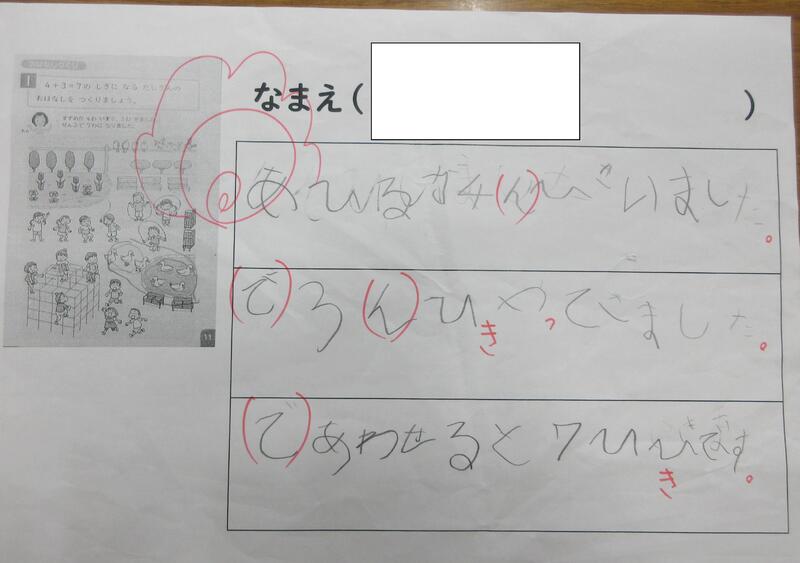 おはなしづくり
1
4+3=7の しきに なる たしざんの
おはなしを つくりましょう。
11
なまえ( )
あひるが4(ん)
いました。
(で)ろ(ん)ひ
き
やってきました。
っ
(で)あわせると7ひ
き
です。